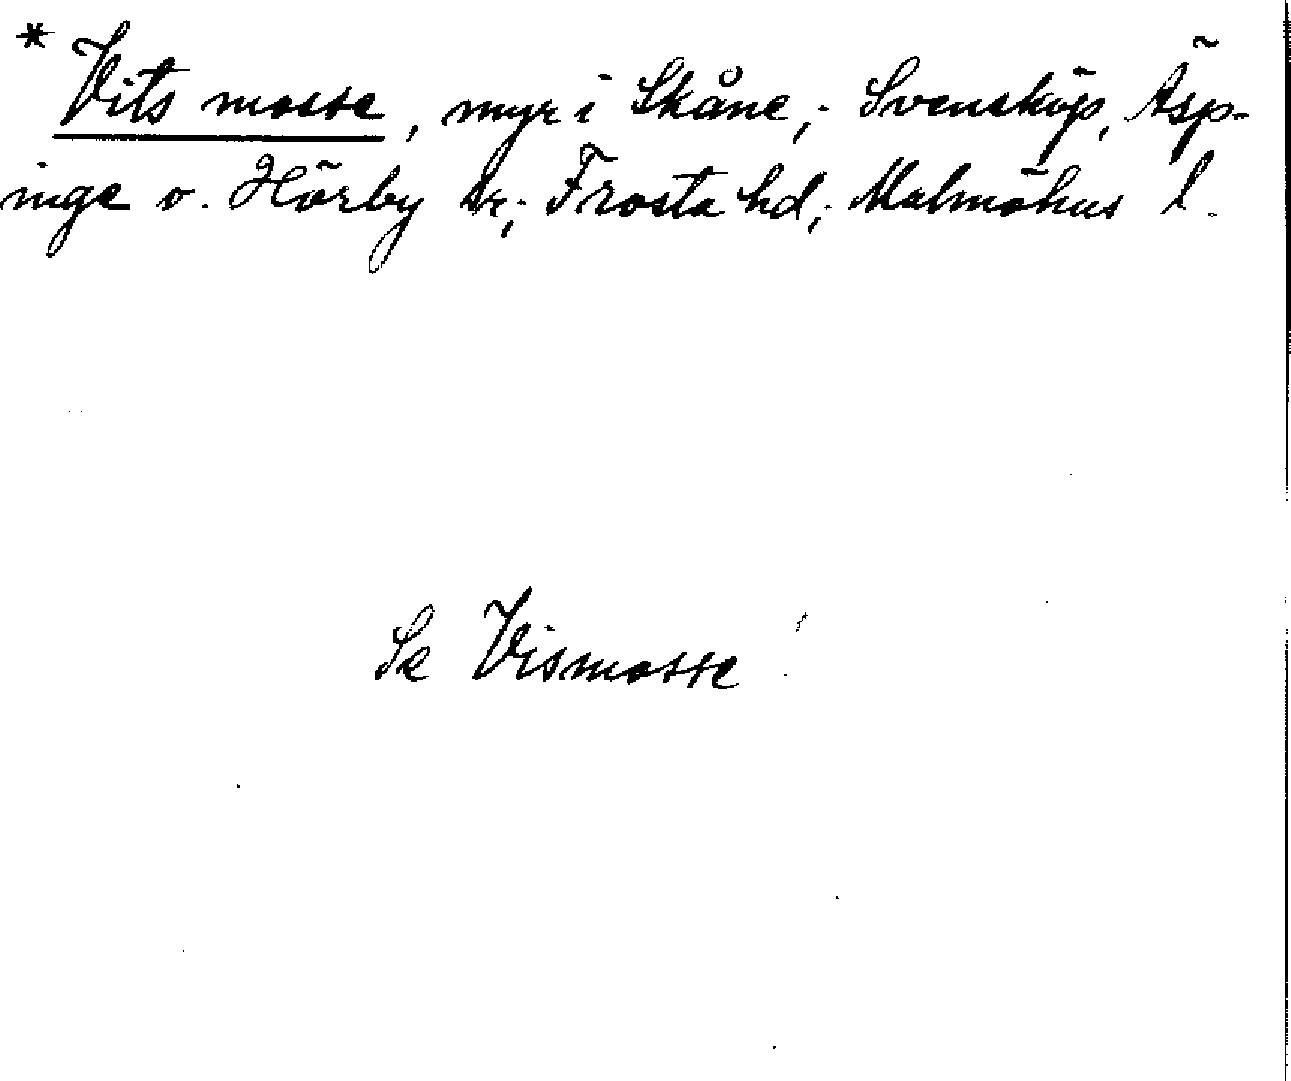 * Vits mosse, myr i Skåne,; Svensköp, Äsp-
inge o. Hörby sr,; Frosta hd,; Malmöhus l.
Se Vismosse!